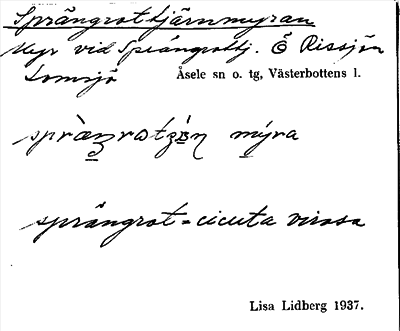 Sprängrottjärnmyran
Myr vid Sprängrottj. Ö Rissjön
Lomsjö Åsele sn o. tg, Västerbottens l.
sprängrot = cicuta virosa
Lisa Lidberg 1937.